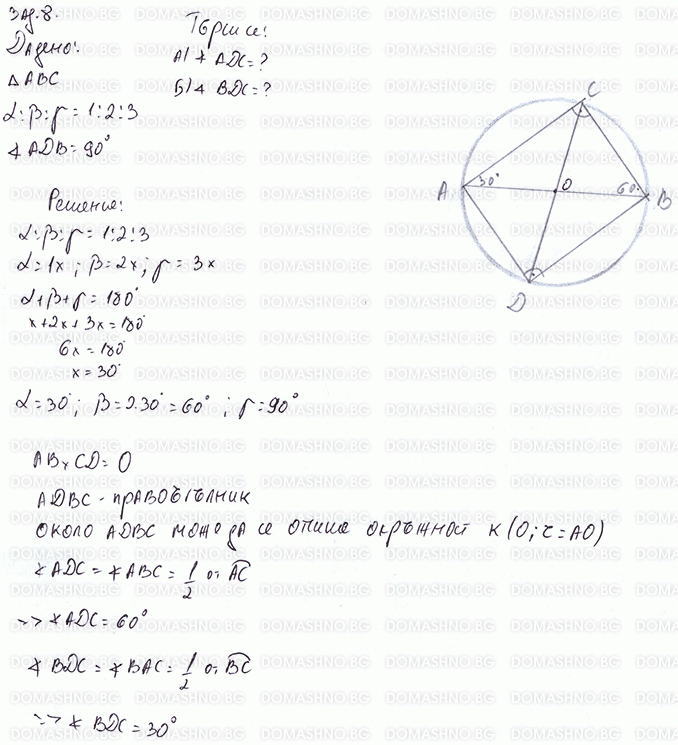 Зад. 8.
Дадено:
△ABC
α:β:γ = 1:2:3
∢ ADB = 90°
Търсисе:
А) ∢ ADC = ?
Б) ∢ BDC = ?
C
A 30° O 60° B
D
Решение:
α:β:γ = 1:2:3
α = 1x ; β = 2x ; γ = 3x
α+β+γ = 180°
x+2x+3x = 180°
6x = 180°
x = 30°
α = 30° ; β = 2.30° = 60° ; γ = 90°
AB x CD = O
ADBC - правоъгълник
около ADBC може да се опише окръжност k (O; r = AO)
∢ ADC = ∢ ABC = 1/2 от AC
=> ∢ ADC = 60°
∢ BDC = ∢ BAC = 1/2 от BC
=> ∢ BDC = 30°